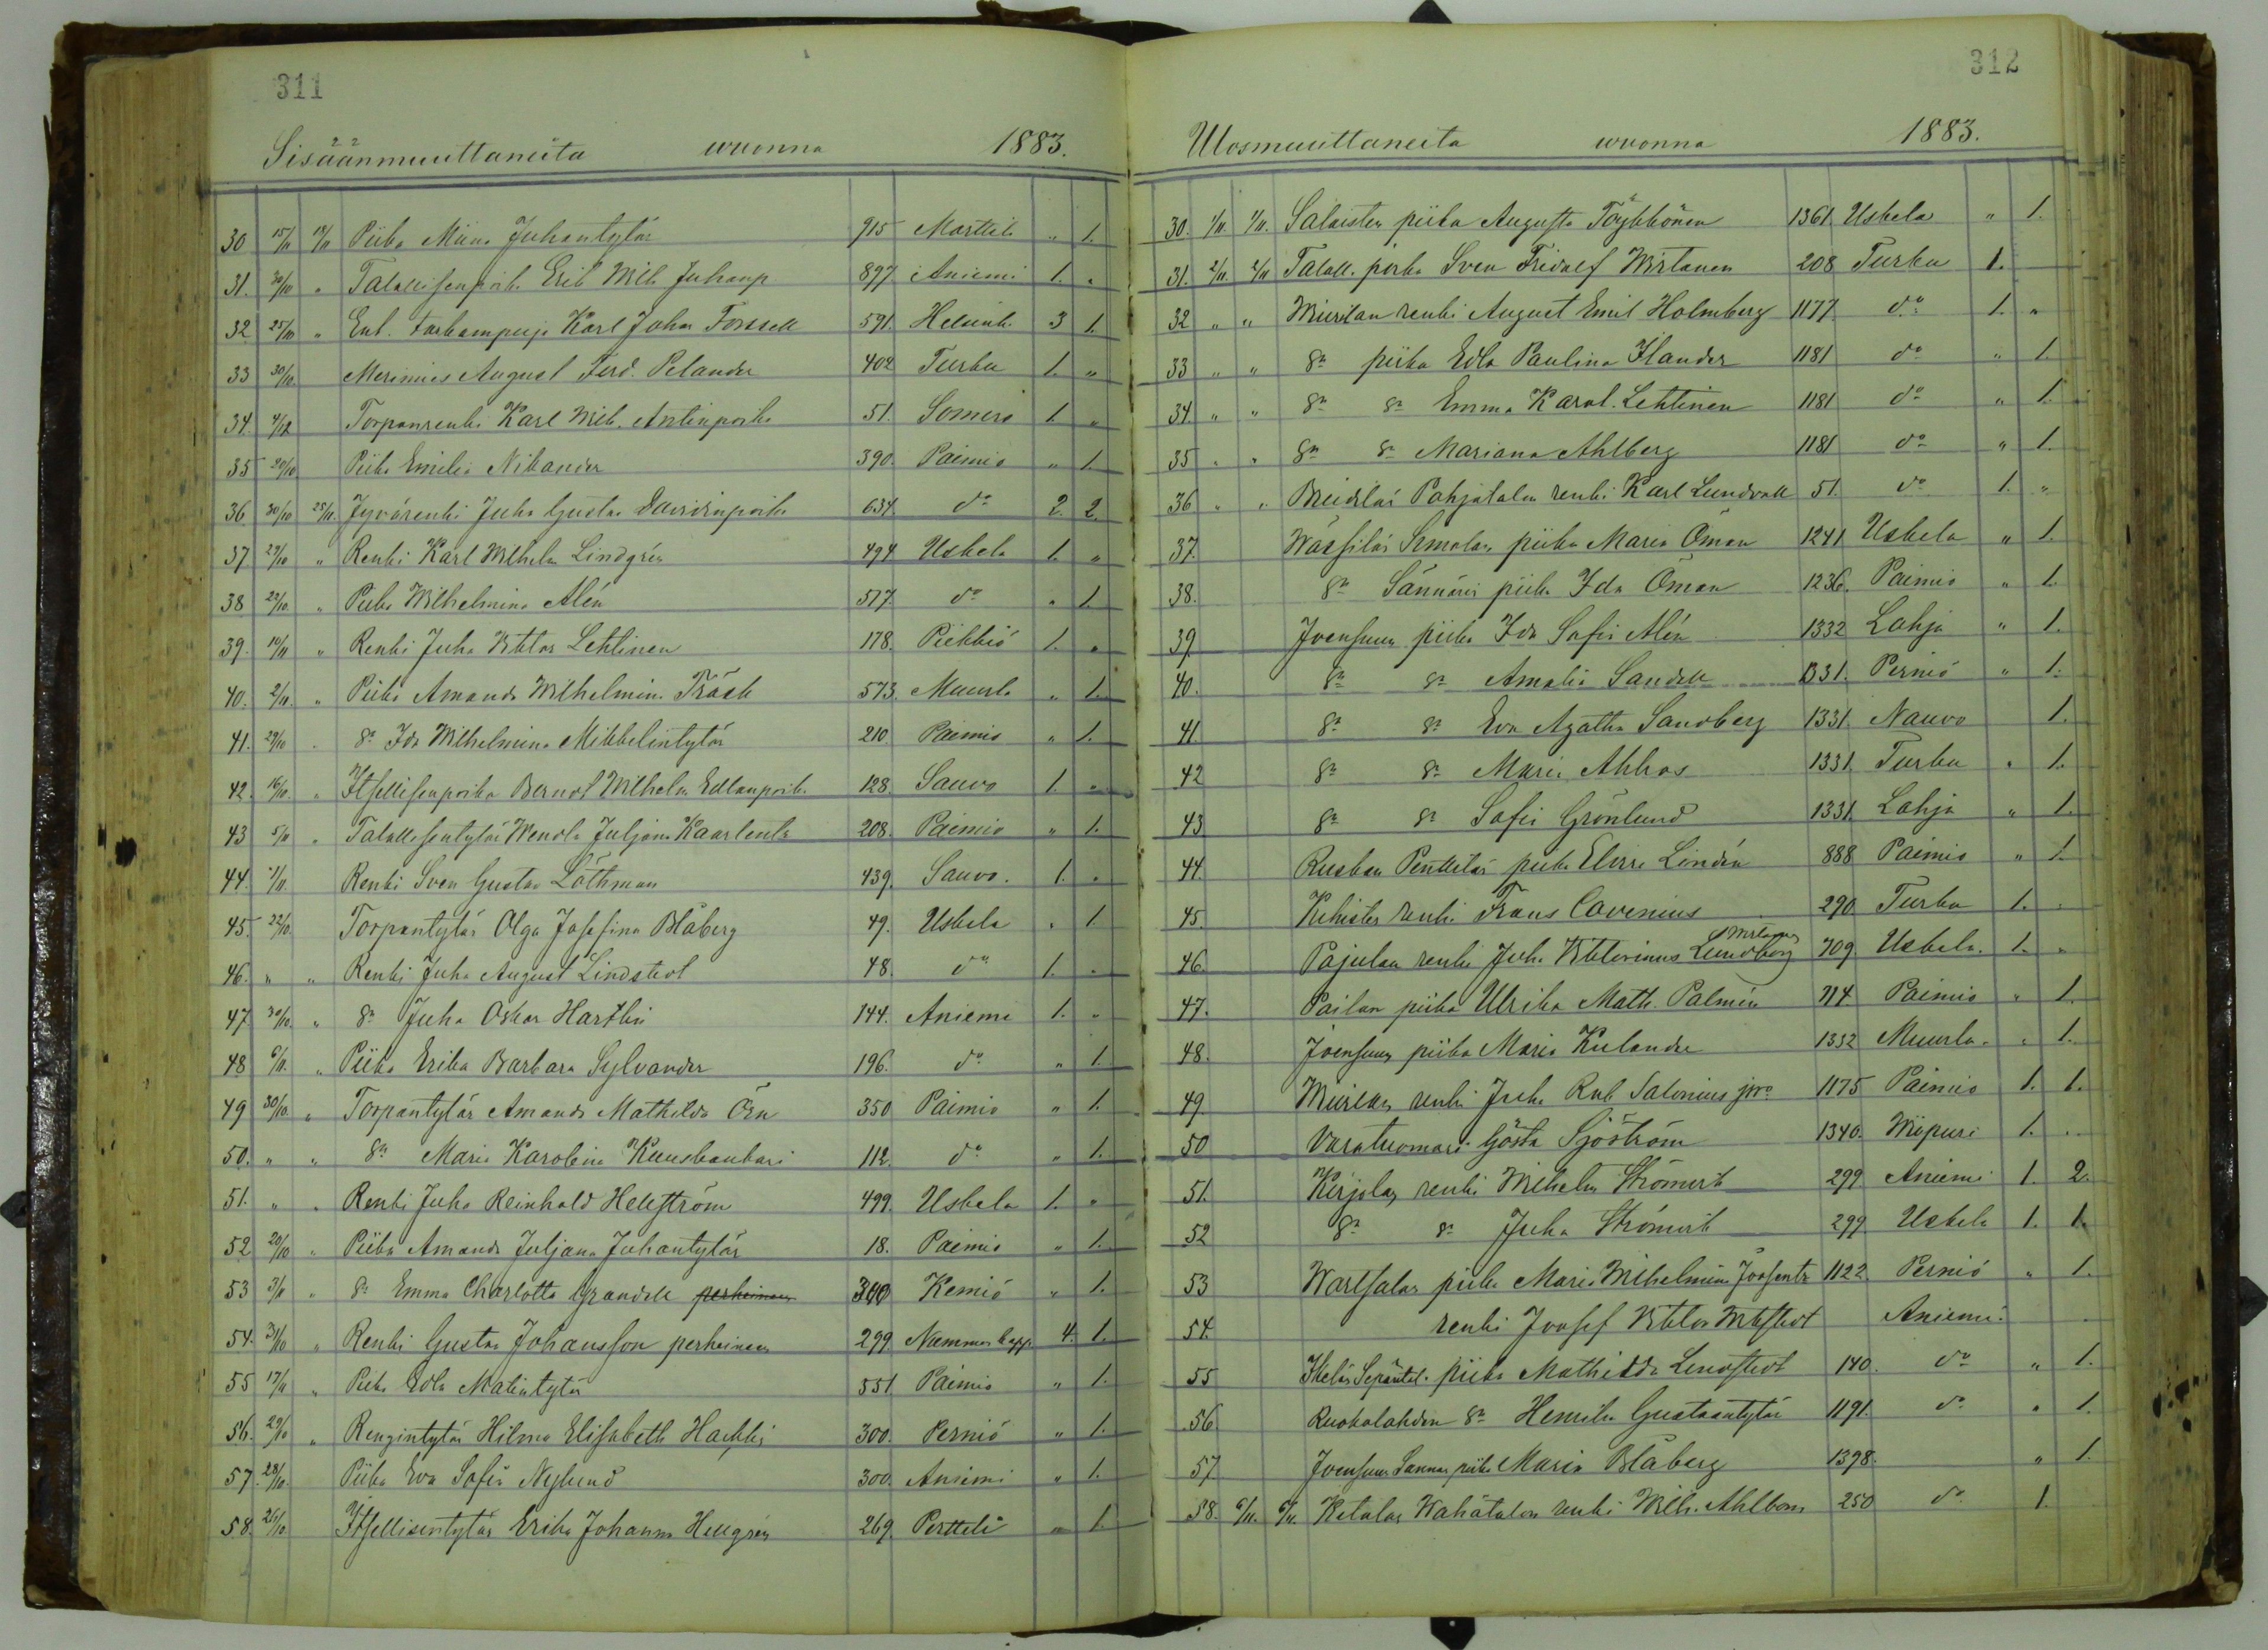 311
Sisäänmuuttaneita wuonna 1883.
30 15/11 17/11 Piika Miina Juhantytär 915 Marttila „ 1.
31. 30/10 „ Talollisenpoik. Erik Wilh. Juhanp 897. Aniemi 1. „
32 25/10 „ Ent. Karl Johan Forssell 591. Helsink. 3 1.
33 30/10. Merimies August Ferd. Pelander 402 Turku 1. „
34. 4/12 Torpanrenki Karl Wilh. Antinpoika 51. Somero 1. „
35 20/10 Piika Emilia Nikander 390. Paimio „ 1.
36 30/10 25/11. Jyvärenki Juha Gustav Davidinpoika 634. d:o 2. 2.
37 29/10 „ Renki Karl Wilhelm Lindgrén 494. Uskela 1. „
38 22/10. „ Piika Wilhelmina Alén 517. d:o „ 1.
39. 10/11 „ Renki Juha Viktor Lehtinen 178. Piikkiö 1. „
40. 2/11. „ Piika Amanda Wilhelmin. Träsk 573. Muurla „ 1.
41. 29/10 „ d:o Ida Wilhelmina Mikkelintytär 210. Paimio „ 1.
42. 16/10. „ Itsellisenpoika Bernot Wilhelm Edlanpoik. 128. Sauvo 1. „
43 5/11 „ Talollisentytär Wendla Juljana Kaarlentr 208. Paimio „ 1.
44. 7/11. Renki Sven Gustav Löthman 439. Sauvo. 1. „
45. 22/10. Torpantytär Olga Josefina Blåberg 49. Uskela „ 1
46. „ „ Renki Juha August Lindstedt 48. d:o 1. „
47 30/10. „ d:o Juha Oskar Hartlin 144. Aniemi 1. „
48 6/11. „ Piika Erika Barbara Sylvander 196. d:o „ 1
49 30/10. „ Torpantytär Amanda Mathilda Örn 350 Paimio „ 1.
50. „ „ d:o Maria Karolina Kuuskankari 112. d:o „ 1.
51. „ „ Renki Juha Reinhold Hellström 499. Uskela 1. „
52 20/10 „ Piika Amanda Juljana Juhantytär 18. Paimio „ 1.
53 3/11 „ d:o Emma Charlotta Grandell perheineen 300 Kemiö „ 1.
54. 31/10 „ Renki Gustav Johansson perheineen 299. Nummen kapp. 4. 1.
55 17/11 „ Piika Edla Matintytär 551 Paimio „ 1.
56. 29/10 „ Rengintytär Hilma Elisabeth 300. Perniö „ 1.
57. 28/10. Piika Eva Sofia Nylund 300. Aniemi „ 1.
58. 26/10. Itsellisentytär Erika Johanna Hellgrén 269. Pertteli „ 1.
312
Ulosmuuttaneita wuonna 1883.
30. 1/11. 1/11. Salaisten piika Augusta Töykkönen 1361. Uskela „ 1.
31. 2/11. 2/11 Taloll. poika Sven Fridolf Wirtanen 208 Turku 1.
32 „ „ Miirilan renki August Emil Holmberg 1177. d:o 1. „
33 „ „ d:o piika Edla Paulina Ilander 1181 d:o „ 1.
34 „ „ d:o d:o Emma Karol. Lehtinen 1181 d:o „ 1.
35 „ „ d:o d:o Mariana Ahlberg 1181 d:o „ 1.
36 „ „ Pohjatalon renki Karl Lundvall 51. d:o 1. „
37. piika Maria Öman 1241 Uskela „ 1.
38. d:o Sännäri piika Ida Öman 1236. Paimio „ 1.
39. Joensuun piika Ida Sofia Alén 1332 Lohja „ 1.
40. d:o d:o Amalia Sandell 1331. Perniö „ 1.
41. d:o d:o Eva Agatha Sandberg 1331. Nauvo 1.
42 d:o d:o Maria Ahlros 1331. Turku „ 1.
43 d:o d:o Sofia Grönlund 1331. Lohja „ 1.
44. Ruskan Penttilän piika Elviira Lindén 888 Paimio „ 1.
45. renki Frans Cavenius 290 Turku 1. „
46. Pajulan renki Juha Viktorinus Lundberg 709. Uskela. 1. „
47. Pailan piika Ulrika Math. Palmén 714 Paimio „ 1.
48. Joensuun piika Maria Kulander 1332 Muurla. „ 1.
49 Miirilan renki Juha Rob Salonius 1175 Paimio 1. 1.
50 Varatuomari Gösta Sjöström 1340. Wiipuri 1. „
51. Kirjolan renki Wilhelm Strömvik 299 Aniemi 1. 2.
52 d:o d:o Juha Strömvik 299. Uskela 1. 1.
53 Wartsalan piika Maria Wilhelmina Joosentr 1122. Perniö „ 1.
54. renki Joosef Viktor Aniemi.
55 piika Mathilda Lindstedt 140. d:o „ 1.
56 Ruokolahden d:o Hemika Gustaantytär 1191. d:o „ 1.
57 Joensuun Sannas piika Maria Blåberg 1398. „ 1.
58. 6/11. 6/11. Ketalan Wähätalon renki Wilh. Ahlbom 250 d:o 1.